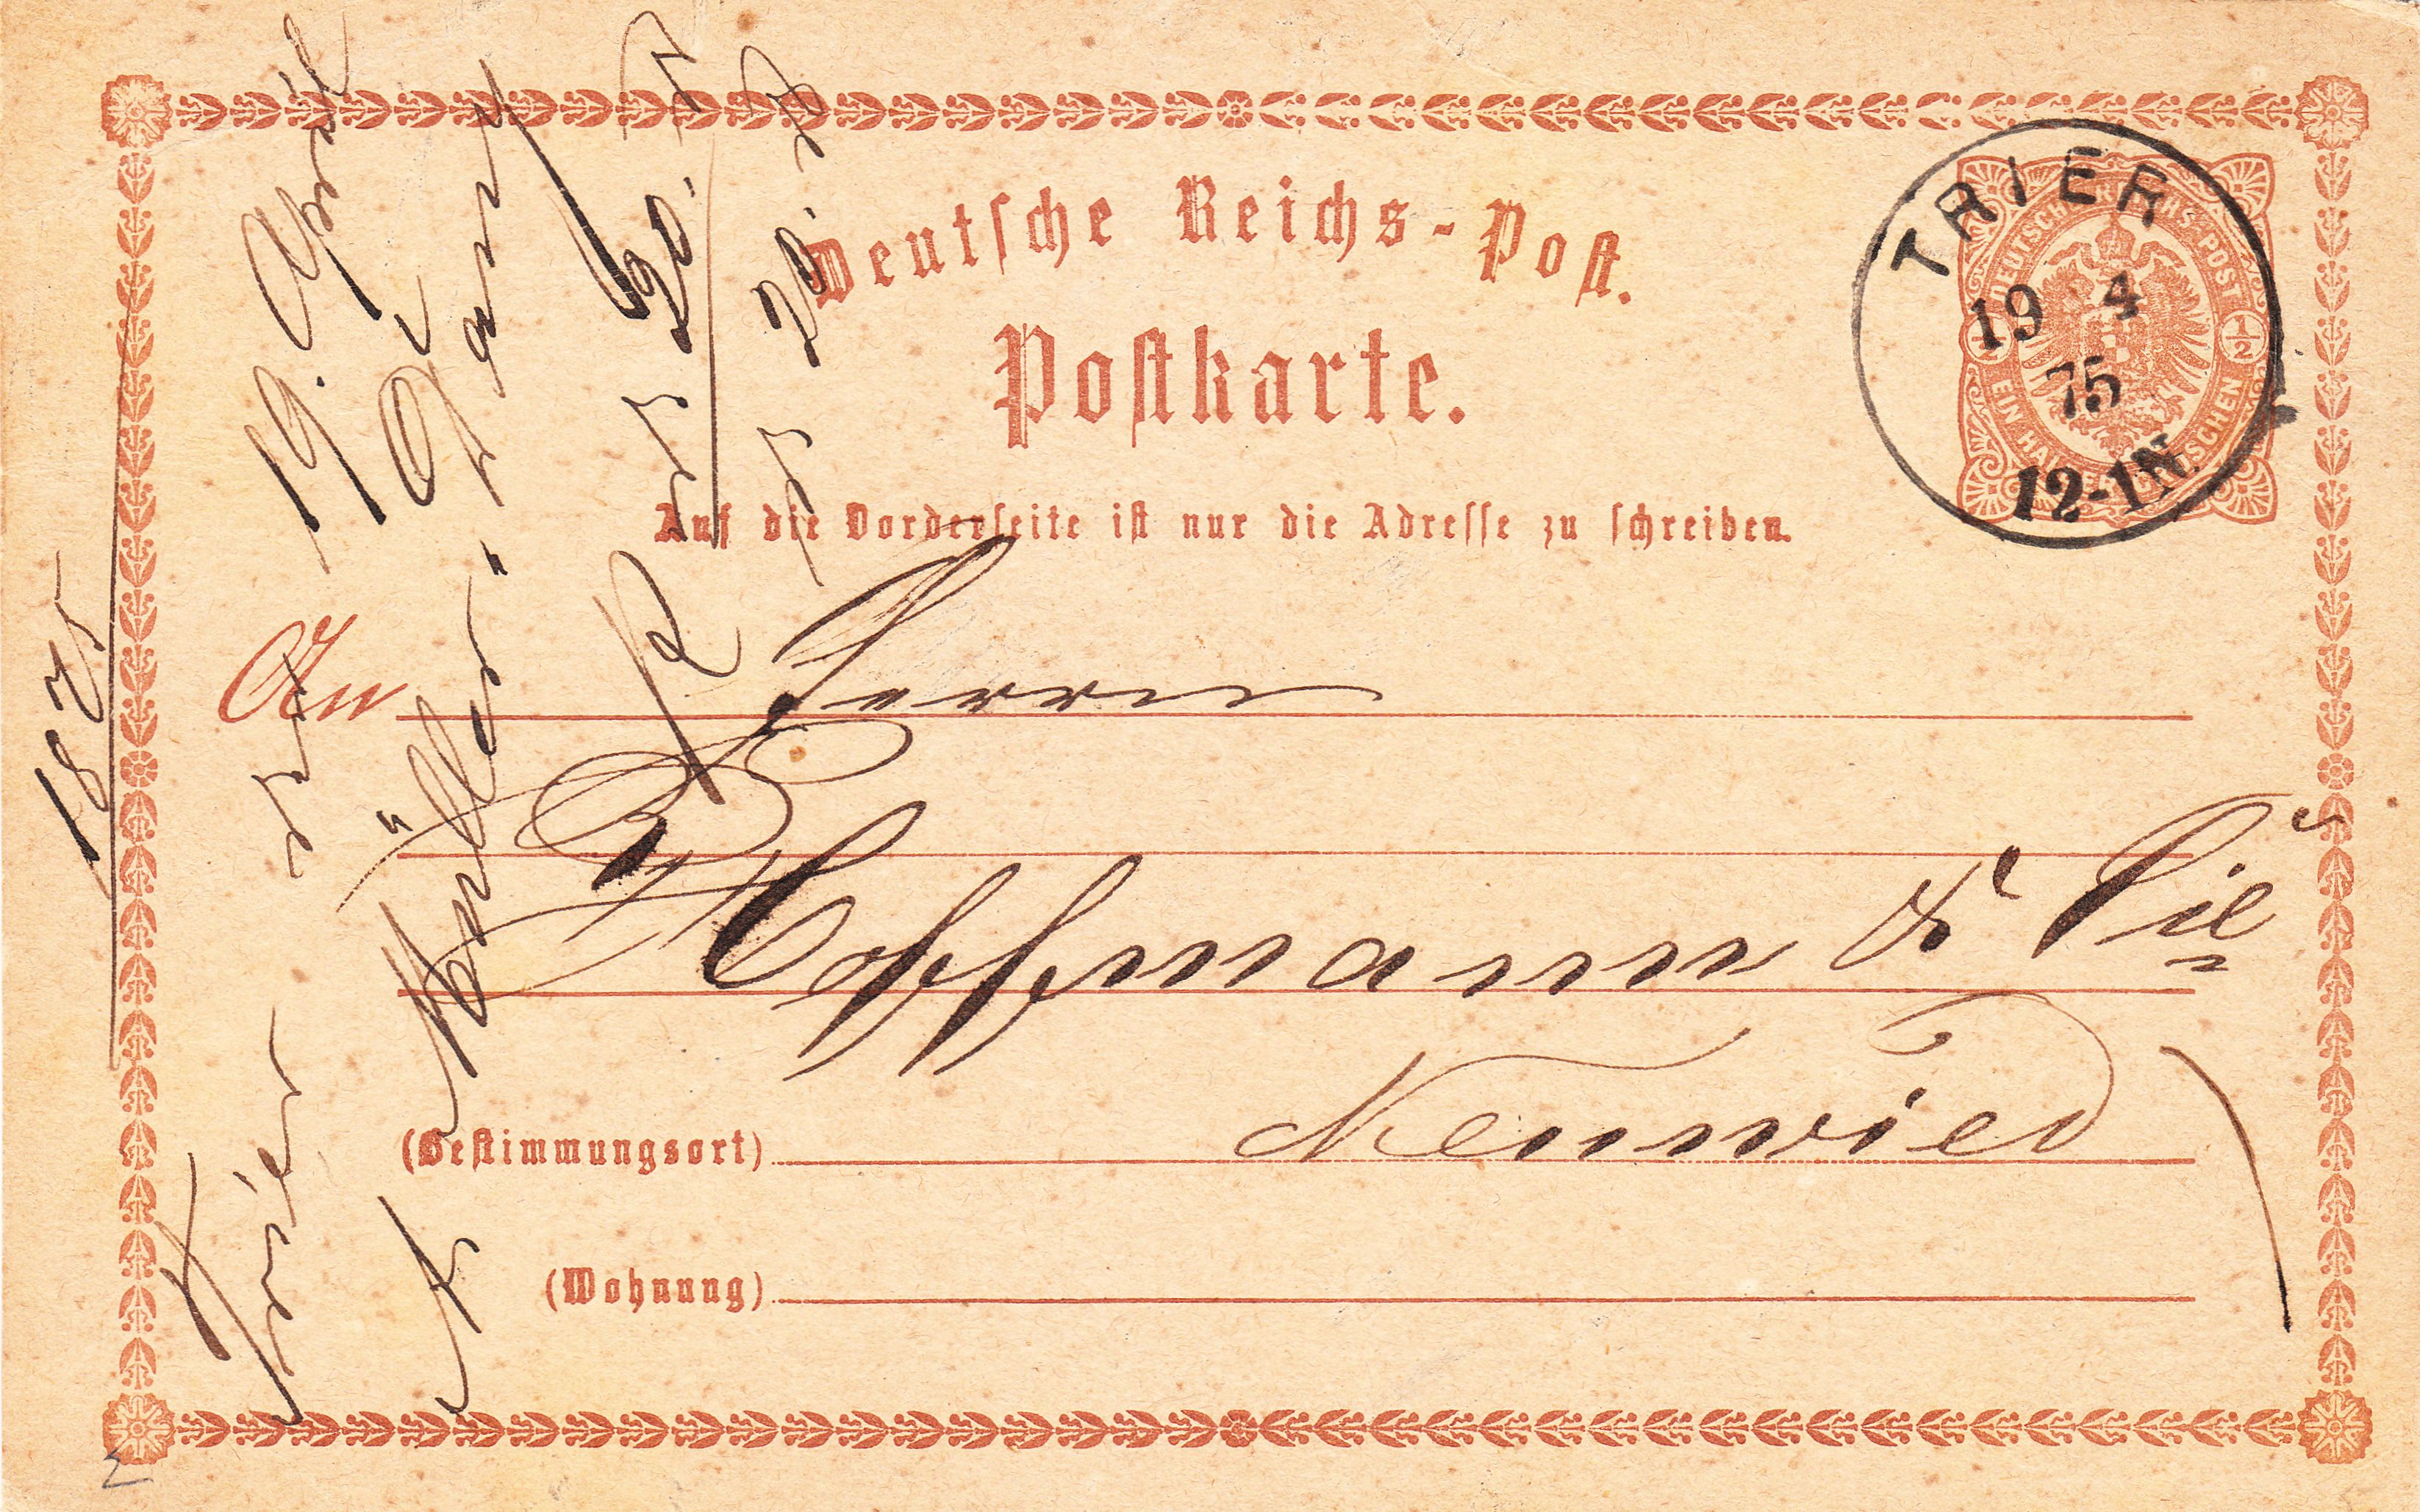 Deutsche Reichs-Post.
Postkarte.
Auf die Vorderseite ist nur die Adresse zu schreiben.
DEUTSCHE REICHS-POST
½ ½
EIN HALBER GROSCHEN
TRIER
19 4
75
12-1N.
An Herrn
Hoffmann & Cie
(Bestimmungsort) Neuwied
(Wohnung)
1875
Trier 19. April
Müller
R 20.
20.